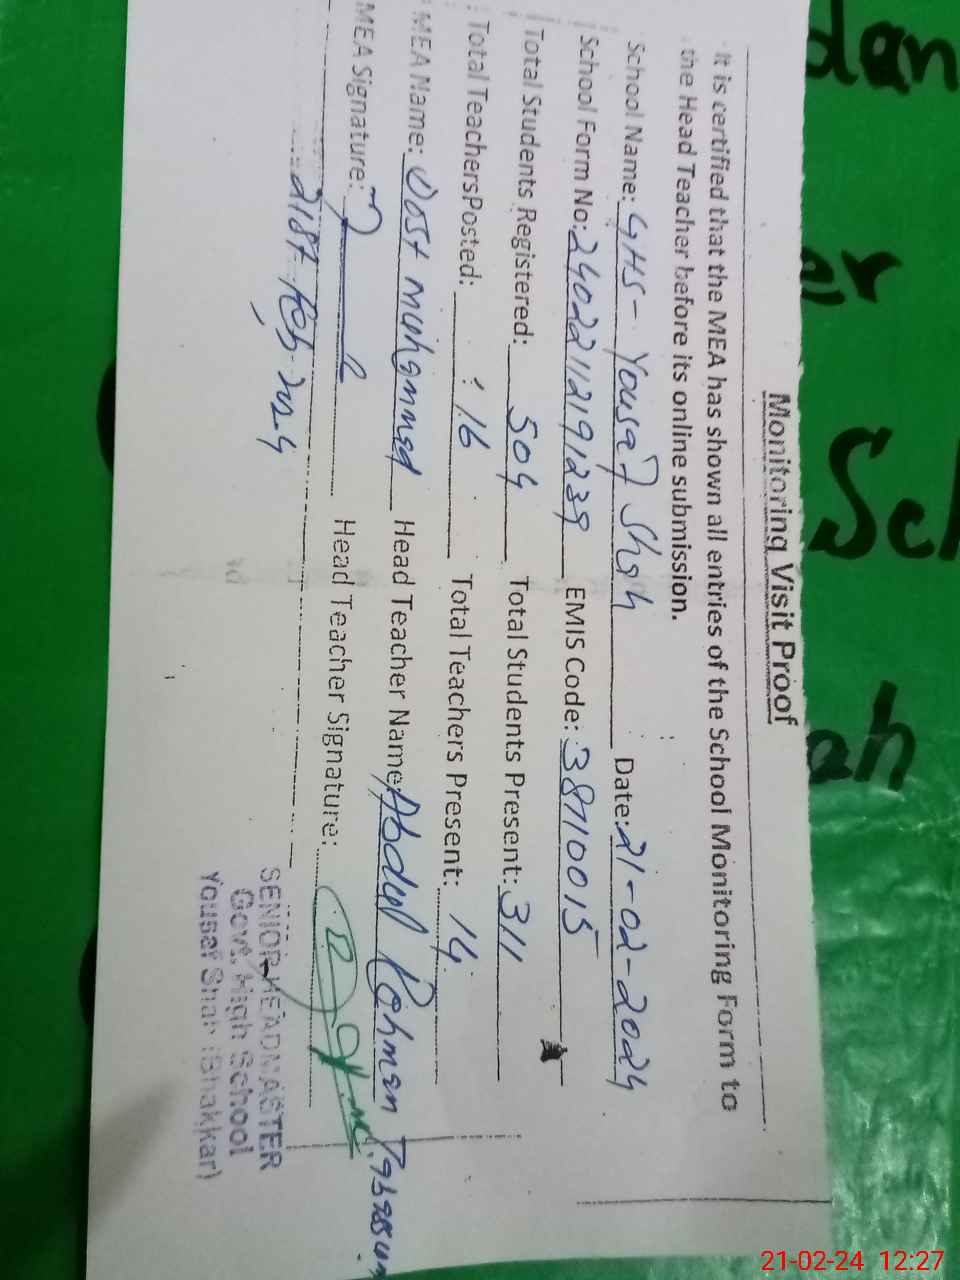 Monitoring Visit Proof
It is certified that the MEA has shown all entries of the School Monitoring Form to
the Head Teacher before its online submission.
School Name: GHS- Yousaf Shah Date: 21-02-2024
School Form No: 24022112191239 EMIS Code: 38710015
Total Students Registered: 504 Total Students Present: 311
Total TeachersPosted: 16 Total Teachers Present: 14
MEA Name: Dost Muhammad Head Teacher Name: Abdul Rahman
MEA Signature: Head Teacher Signature:
21st Feb 2024
SENIOR HEADMASTER
Govt, High School
Yousaf Shah (Shakkar)
dan
Sch
ah
21-02-24 12:27